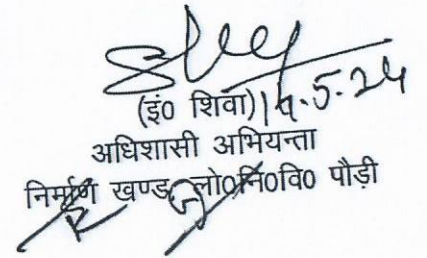 (इं0 शिवा) 14.5.24
अधिशासी अभियन्ता
निर्माण खण्ड, लो0नि0वि0 पौड़ी